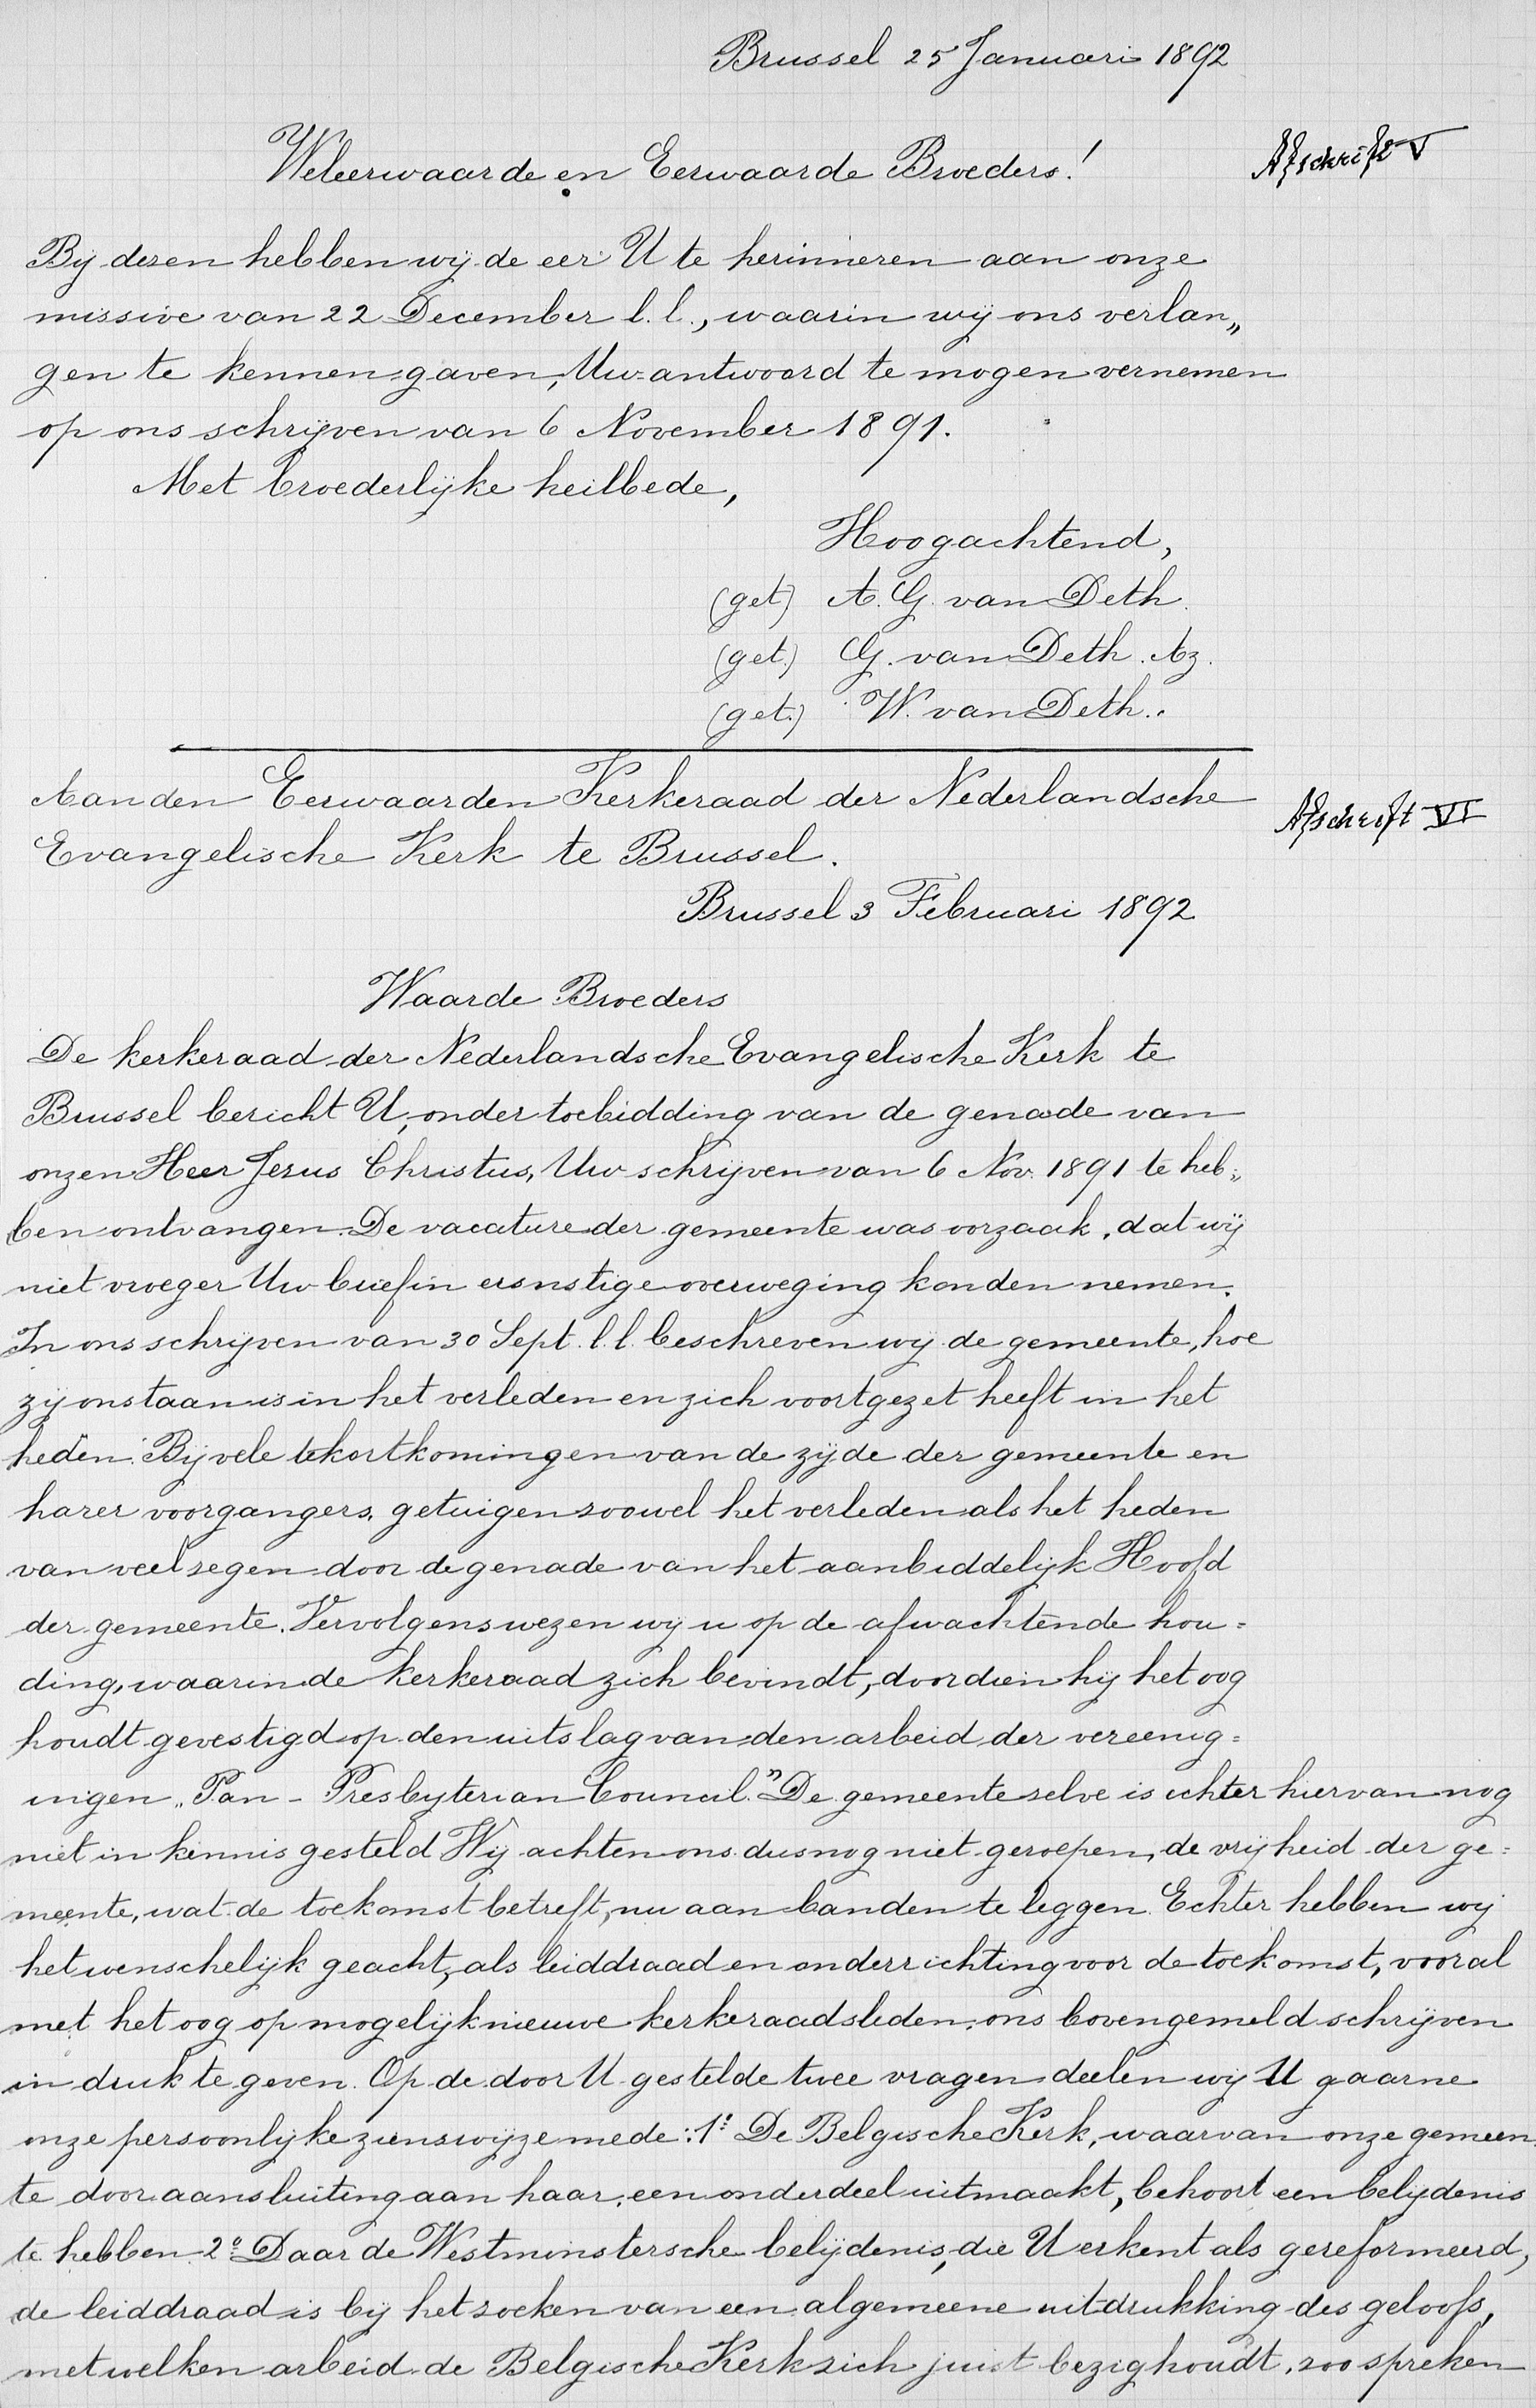 Brussel 25 Januari 1892
Weleerwaarde en Eerwaarde Broeders!
Afschrift V
Bij dezen hebben wij de eer U te herinneren aan onze
missive van 22 December l.l., waarin wij ons verlan„
gen te kennen gaven, Uw antwoord te mogen vernemen
op ons schrijven van 6 November 1891.
Met broederlijke heilbede,
Hoogachtend,
(get) A. G. van Deth.
(get.) G. van Deth. Az.
(get.) W. van Deth.
Aan den Eerwaarden Kerkeraad der Nederlandsche
Afschrift VI
Evangelische Kerk te Brussel.
Brussel 3 Februari 1892
Waarde Broeders
De kerkeraad der Nederlandsche Evangelische Kerk te
Brussel bericht U, onder toebidding van de genade van
onzen Heer Jesus Christus, Uw schrijven van 6 Nov. 1891 te heb„
ben ontvangen. De vacature der gemeente was oorzaak, dat wij
niet vroeger Uw brief in ernstige overweging konden nemen.
In ons schrijven van 30 Sept. l.l. beschreven wij de gemeente, hoe
zij onstaan is in het verleden en zich voortgezet heeft in het
heden. Bij vele tekortkomingen van de zijde der gemeente en
harer voorgangers, getuigen zoowel het verleden als het heden
van veel zegen door de genade van het aanbiddelijk Hoofd
der gemeente. Vervolgens wezen wij u op de afwachtende hou=
ding, waarin de kerkeraad zich bevindt, doordien hij het oog
houdt gevestigd op den uitslag van den arbeid der vereenig=
ingen „Pan-Presbyterian Council." De gemeente zelve is echter hiervan nog
niet in kennis gesteld Wij achten ons dus nog niet geroepen, de vrijheid der ge=
meente, wat de toekomst betreft, nu aan banden te leggen. Echter hebben wij
het wenschelijk geacht, als leiddraad en onderrichting voor de toekomst, vooral
met het oog op mogelijk nieuwe kerkeraadsleden, ons bovengemeld schrijven
in druk te geven. Op de door U gestelde twee vragen deelen wij U gaarne
onze persoonlijke zienswijze mede: 1° De Belgische Kerk, waarvan onze gemeen
te door aansluiting aan haar, een onderdeel uitmaakt, behoort een belijdenis
te hebben 2° Daar de Westminstersche belijdenis, die U erkent als gereformeerd,
de leiddraad is bij het zoeken van een algemeene uitdrukking des geloofs,
met welken arbeid de Belgische Kerk zich juist bezighoudt, zoo spreken